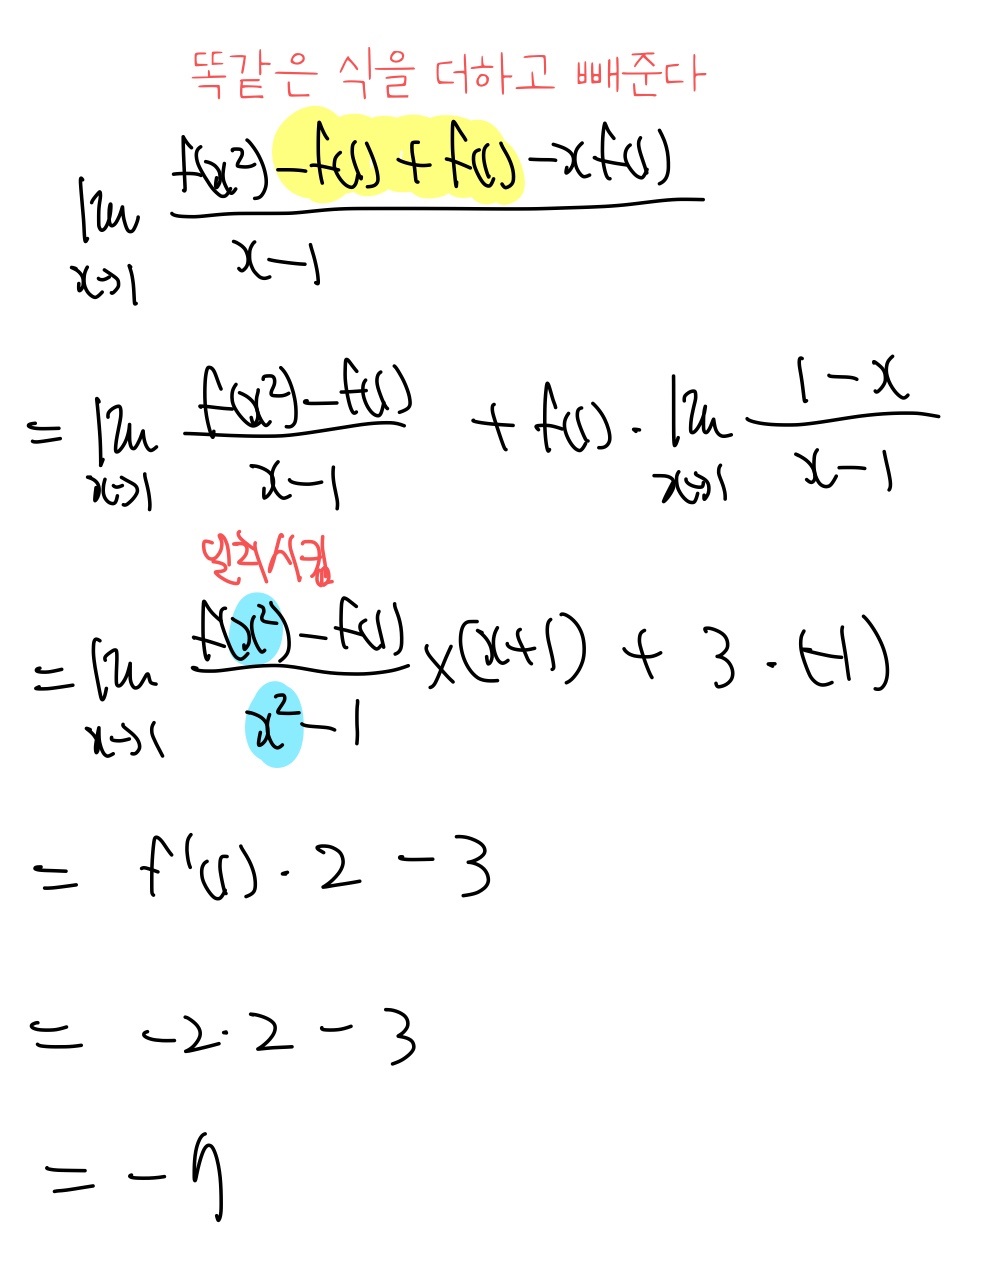 똑같은 식을 더하고 빼준다
lim x→1 (f(x²) - f(1) + f(1) - xf(1)) / (x-1)
= lim x→1 (f(x²) - f(1)) / (x-1) + f(1) · lim x→1 (1-x) / (x-1)
일치시킴
= lim x→1 (f(x²) - f(1)) / (x²-1) × (x+1) + 3 · (-1)
= f'(1) · 2 - 3
= -2 · 2 - 3
= -7